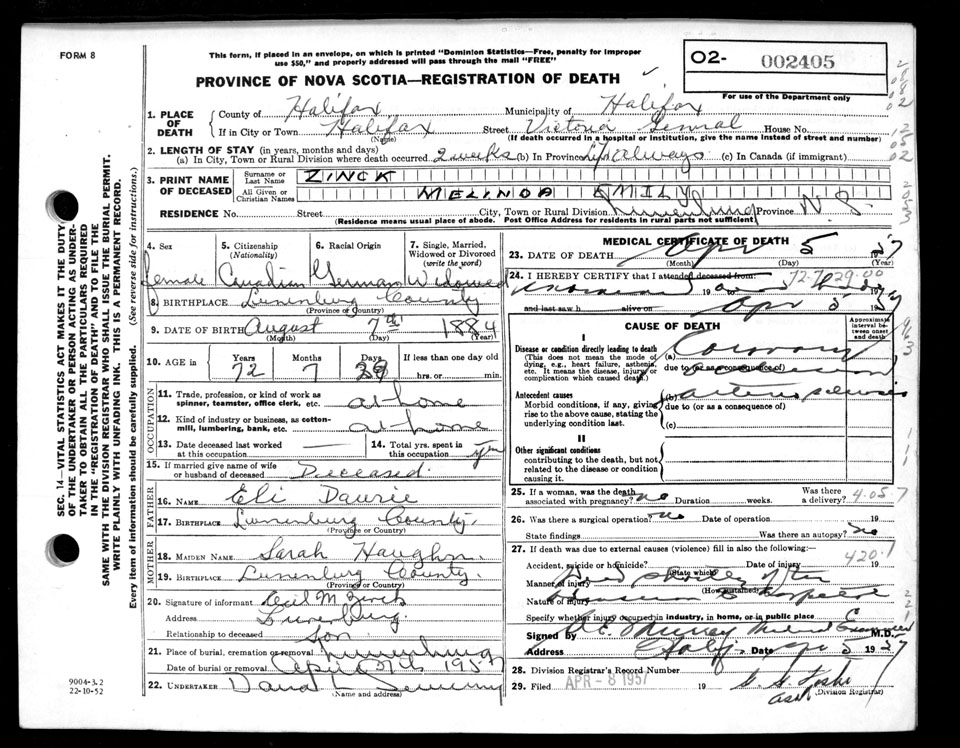 FORM 8
This form, if placed in an envelope, on which is printed "Dominion Statistics—Free, penalty for improper
use $50," and properly addressed will pass through the mail "FREE"
PROVINCE OF NOVA SCOTIA—REGISTRATION OF DEATH
O2- 002405
For use of the Department only
1. PLACE OF DEATH
County of Halifax Municipality of Halifax
If in City or Town Halifax Street Victoria General House No.
(Name) (If death occurred in a hospital or institution, give the name instead of street and number)
2. LENGTH OF STAY (in years, months and days)
(a) In City, Town or Rural Division where death occurred 2 weeks (b) In Province always (c) In Canada (if immigrant)
3. PRINT NAME OF DECEASED
Surname or Last Name ZINCK
All Given or Christian Names MELINDA EMILY
RESIDENCE No. Street City, Town or Rural Division Lunenburg Province N.S.
(Residence means usual place of abode. Post Office Address for residents in rural parts not sufficient)
4. Sex 5. Citizenship (Nationality) 6. Racial Origin 7. Single, Married, Widowed or Divorced (write the word)
female Canadian German Widowed
8. BIRTHPLACE Lunenburg County
(Province or Country)
9. DATE OF BIRTH August 7th 1884
(Month) (Day) (Year)
10. AGE in Years Months Days If less than one day old
72 7 29 hrs. or min.
OCCUPATION
11. Trade, profession, or kind of work as spinner, teamster, office clerk, etc. at home
12. Kind of industry or business, as cotton-mill, lumbering, bank, etc. at home
13. Date deceased last worked at this occupation
14. Total yrs. spent in this occupation
15. If married give name of wife or husband of deceased Deceased.
FATHER
16. NAME Eli Daurie
17. BIRTHPLACE Lunenburg County.
(Province or Country)
MOTHER
18. MAIDEN NAME Sarah
19. BIRTHPLACE Lunenburg County.
(Province or Country)
20. Signature of informant Cecil M. Zinck
Address Lunenburg.
Relationship to deceased Son
21. Place of burial, cremation or removal Lunenburg
Date of burial or removal April 1957
22. UNDERTAKER
(Name and address)
MEDICAL CERTIFICATE OF DEATH
23. DATE OF DEATH Apr 5 1957
(Month) (Day) (Year)
24. I HEREBY CERTIFY that I attended deceased from:
19
and last saw h alive on Apr 5 1957
72-7-29-00
CAUSE OF DEATH
Approximate interval between onset and death
I
Disease or condition directly leading to death
(This does not mean the mode of dying, e.g., heart failure, asthenia, etc. It means the disease, injury or complication which caused death.)
(a) Coronary
due to (or as a consequence of)
Antecedent causes
Morbid conditions, if any, giving rise to the above cause, stating the underlying condition last.
(b)
due to (or as a consequence of)
(c)
II
Other significant conditions
contributing to the death, but not related to the disease or condition causing it.
25. If a woman, was the death associated with pregnancy? no Duration weeks. Was there a delivery?
26. Was there a surgical operation? no Date of operation 19
State findings Was there an autopsy? no
27. If death was due to external causes (violence) fill in also the following:—
Accident, suicide or homicide? Date of injury 19
(State which)
420.1
Manner of injury shortly after
(How sustained)
Nature of injury
Specify whether injury occurred in industry, in home, or in public place
Signed by M.D.
Address Halifax Date Apr 5 1957
28. Division Registrar's Record Number
29. Filed APR - 8 1957 19
Division Registrar
SEC. 14—VITAL STATISTICS ACT MAKES IT THE DUTY
OF THE UNDERTAKER OR PERSON ACTING AS UNDER-
TAKER TO OBTAIN ALL THE PARTICULARS REQUIRED
IN THE "REGISTRATION OF DEATH" AND TO FILE THE
SAME WITH THE DIVISION REGISTRAR WHO SHALL ISSUE THE BURIAL PERMIT.
WRITE PLAINLY WITH UNFADING INK. THIS IS A PERMANENT RECORD.
Every item of information should be carefully supplied. (See reverse side for instructions.)
9004-3.2
22-10-52